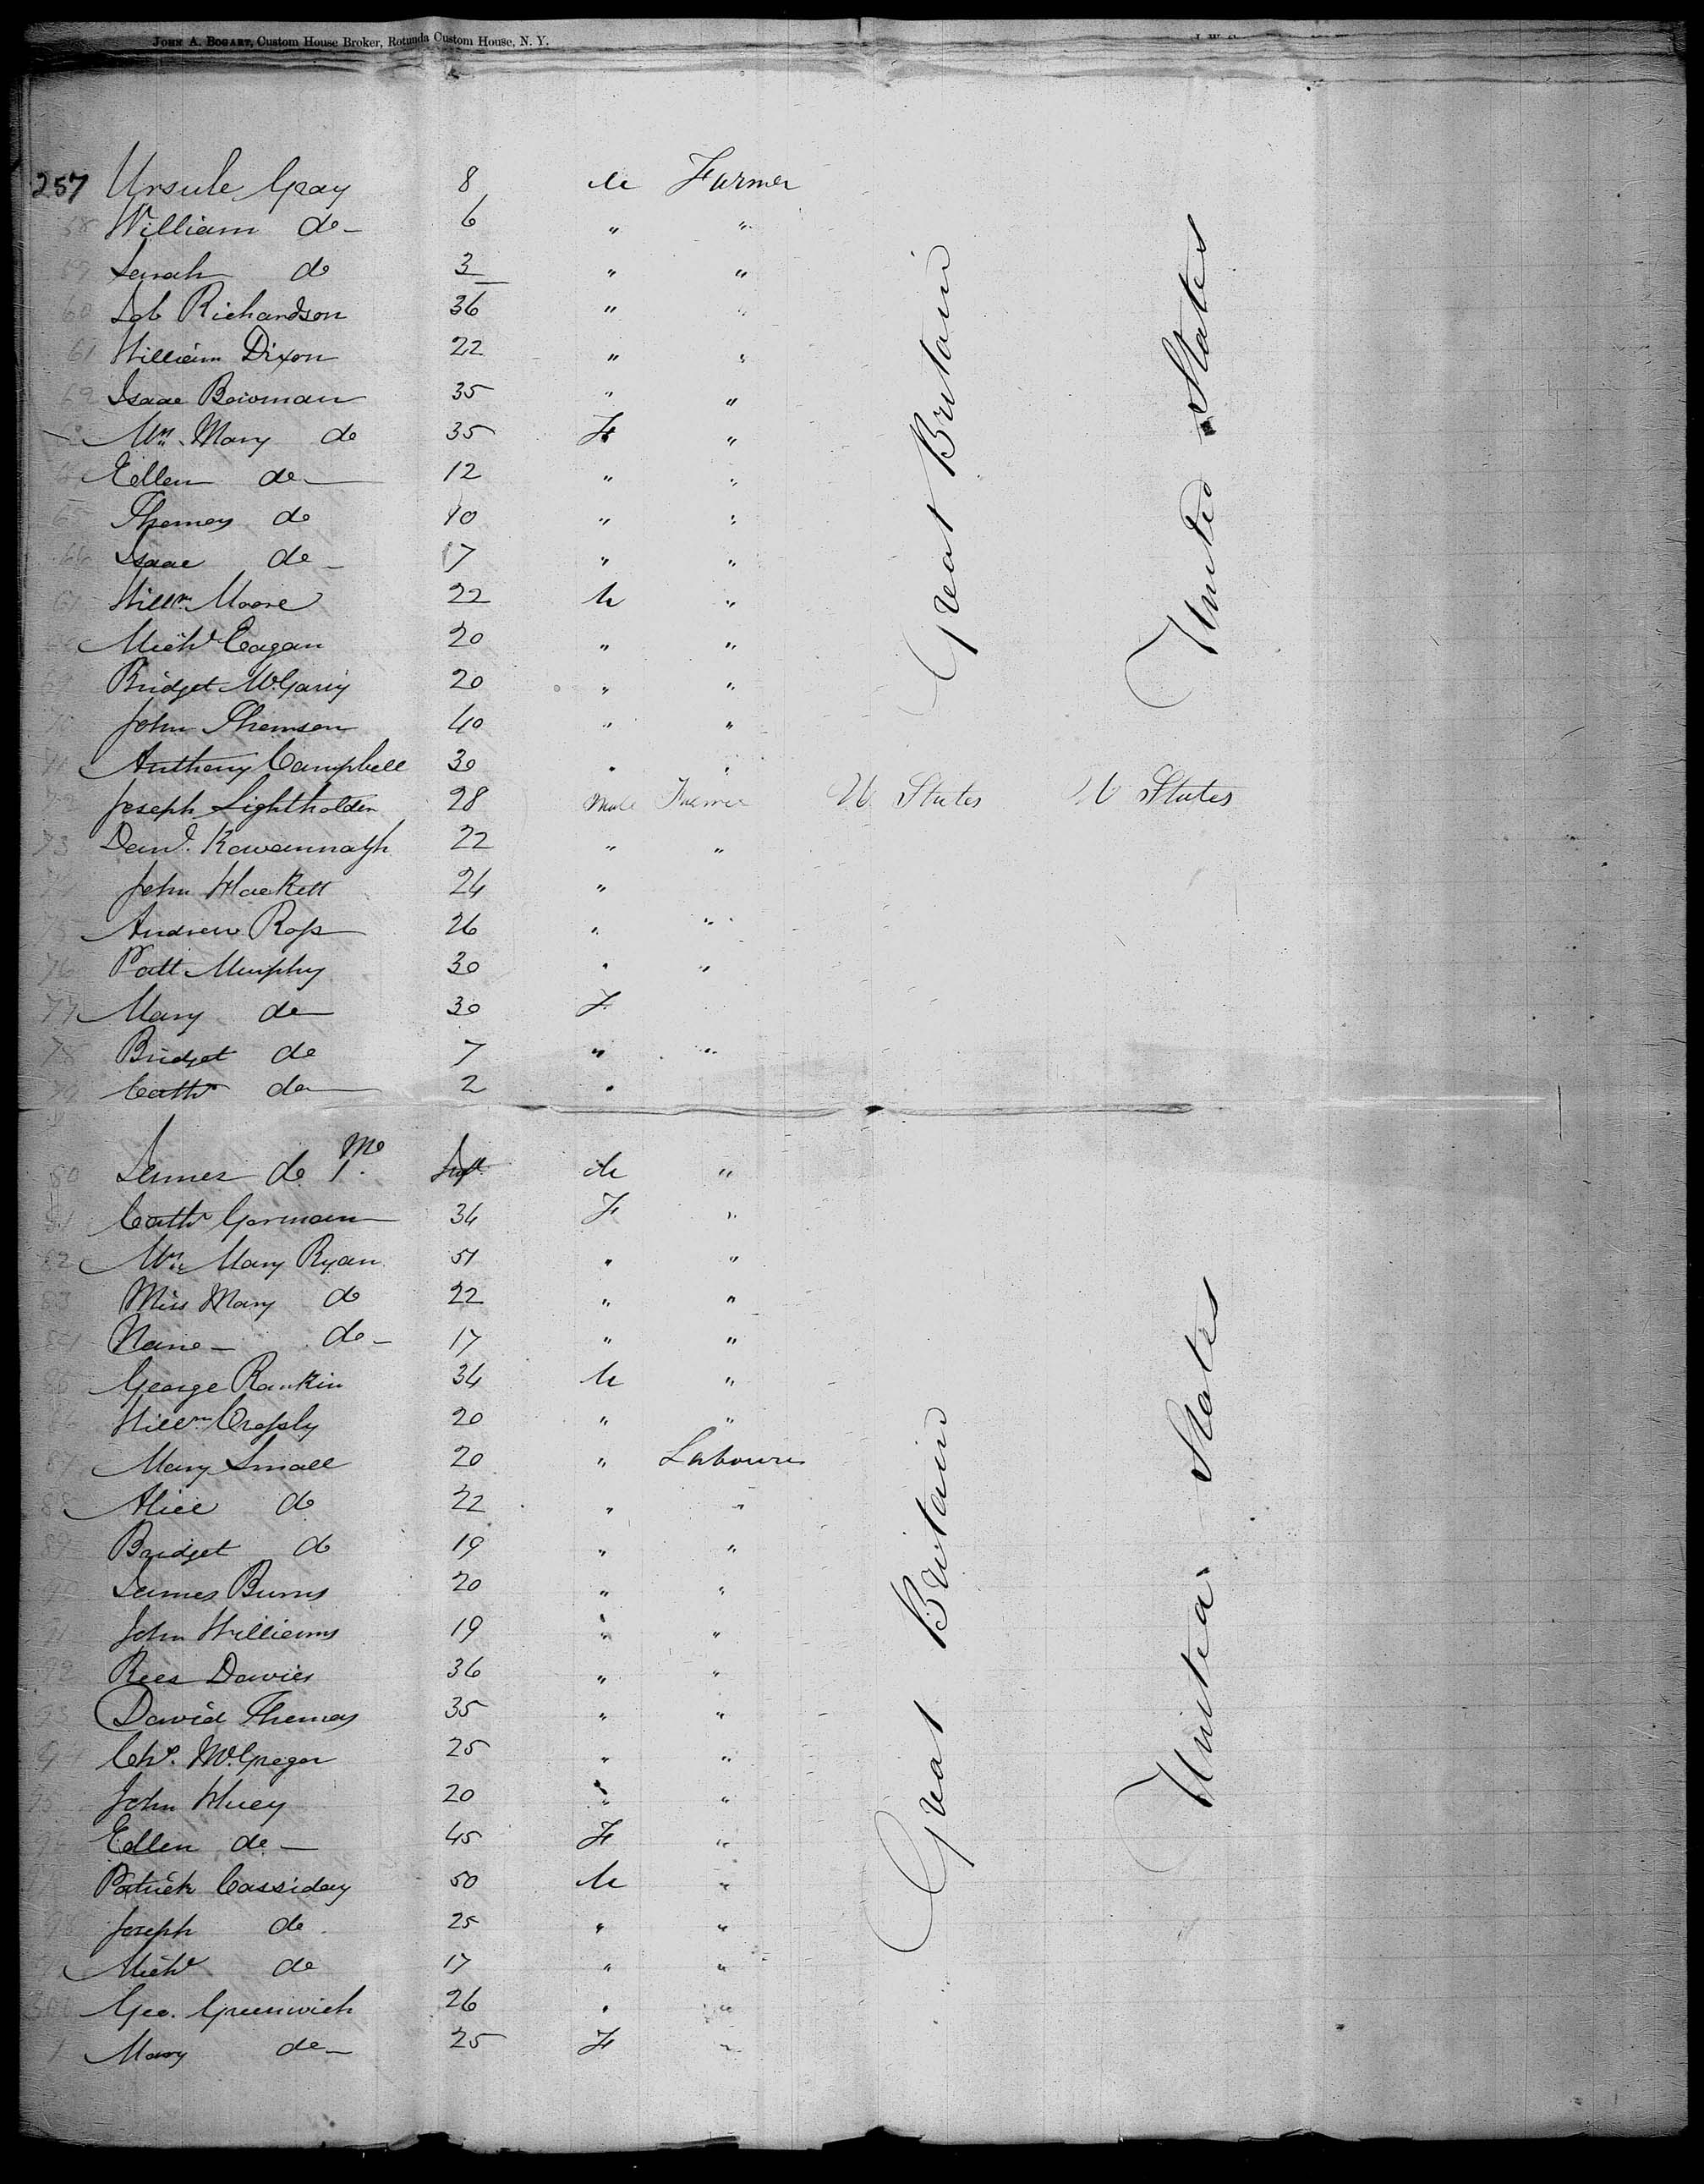 JOHN A. BOGART, Custom House Broker, Rotunda Custom House, N. Y.
257 Ursule Gray 8 M Farmer
58 William do 6 " "
59 Sarah do 3 " "
60 Job Richardson 36 " "
61 William Dixon 22 " "
62 Isaac Bowman 35 " "
Mrs. Mary do 35 F "
Ellen do 12 " "
65 Thomas do 10 " "
66 Isaac do 7 " "
67 Willm Moore 22 M "
Michl Eagan 20 " "
69 Bridget McGarry 20 " "
70 John Thomson 40 " "
71 Anthony Campbell 30 " "
72 Joseph Lightholder 28 Male Farmer U States U States
73 Danl. Kawannagh 22 " "
74 John Hackett 24 "
75 Andrew Ross 26 " "
76 Patt Murphy 30 " "
77 Mary do 30 F
78 Bridget do 7 " "
79 Cathe do 2 "
80 James do 1 Mo Inft M "
81 Cathe Gormann 34 F "
82 Mrs. Mary Ryan 51 " "
83 Miss Mary do 22 " "
84 Nano do 17 " "
85 George Rankin 34 M "
86 Willm Crossly 20 " "
87 Mary Small 20 " Labourer
88 Alice do 22 " "
89 Bridget do 19 " "
90 James Burns 20 " "
91 John Williams 19 " "
92 Rees Davies 36 " "
93 David Thomas 35 " "
94 Chs. McGregor 25 " "
95 John Huey 20 " "
96 Ellen do 45 F "
97 Patrick Cassiday 50 M "
98 Joseph do 25 " "
Michl do 17 " "
300 Geo. Greenwich 26 " "
1 Mary do 25 F "
Great Britain
United States
Great Britain
United States